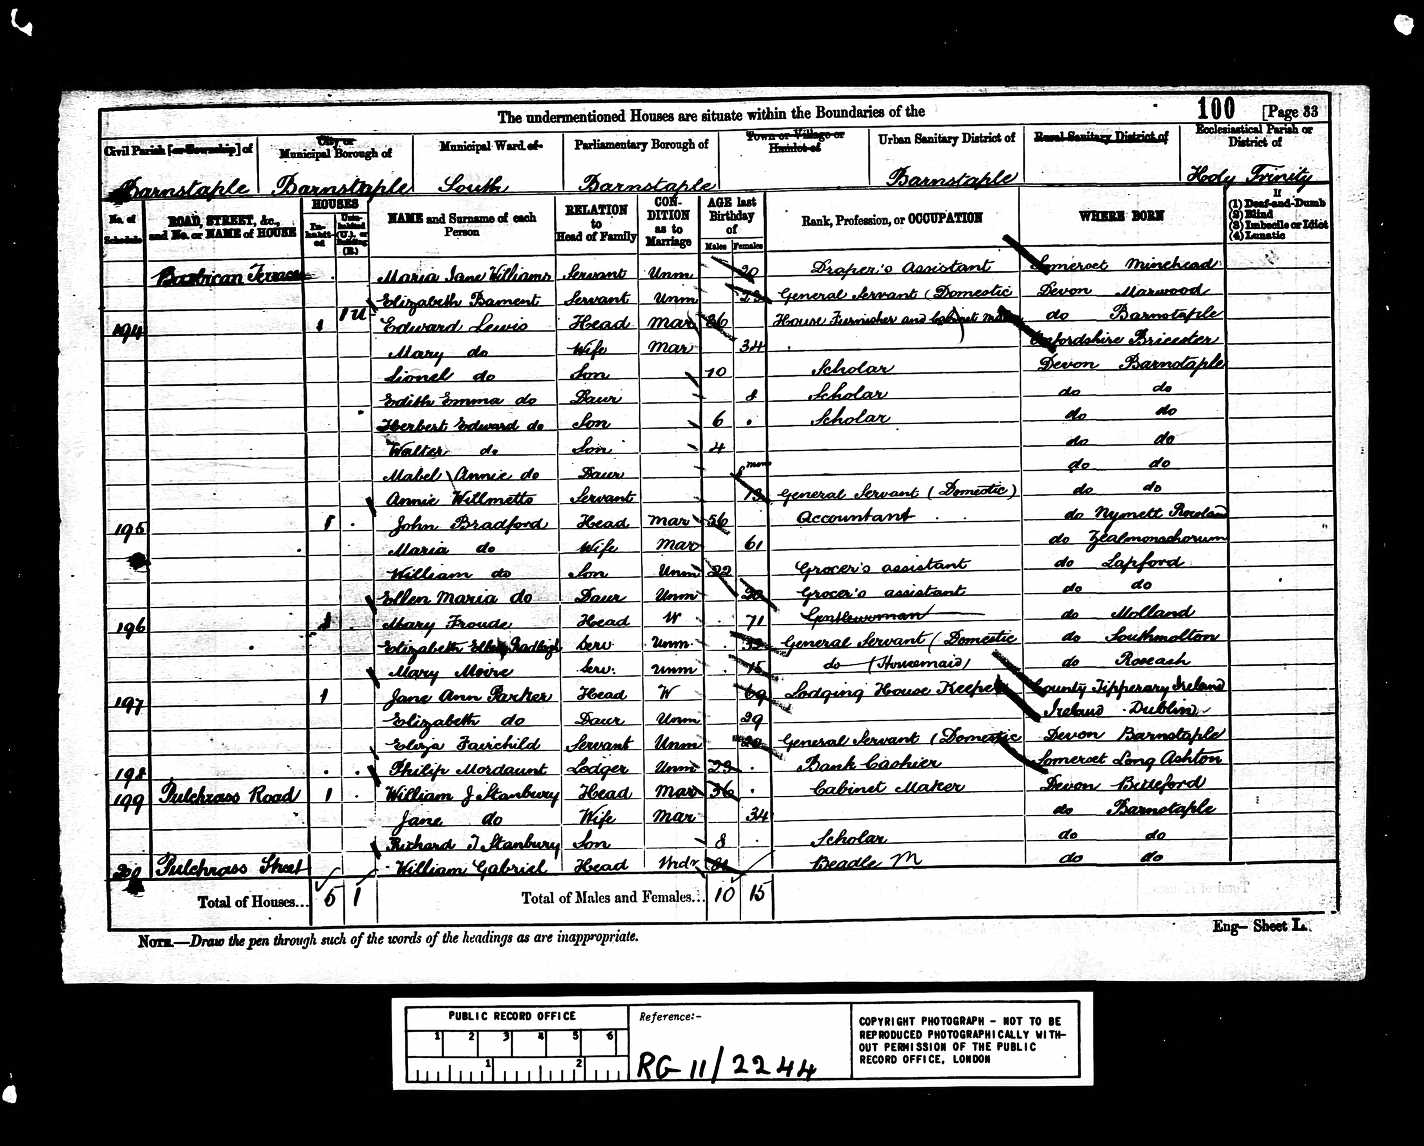 The undermentioned Houses are situate within the Boundaries of the
100 [Page 33
Civil Parish [or Township] of
City or Municipal Borough of
Municipal Ward of
Parliamentary Borough of
Town or Village or Hamlet of
Urban Sanitary District of
Rural Sanitary District of
Ecclesiastical Parish or District of
Barnstaple Barnstaple South Barnstaple Barnstaple Holy Trinity
No. of Schedule
ROAD, STREET, &c., and No. or NAME of HOUSE
HOUSES
Inhabited
Uninhabited (U.), or Building (B.)
NAME and Surname of each Person
RELATION to Head of Family
CONDITION as to Marriage
AGE last Birthday of
Males Females
Rank, Profession, or OCCUPATION
WHERE BORN
If
(1) Deaf-and-Dumb
(2) Blind
(3) Imbecile or Idiot
(4) Lunatic
Barbican Terrace Maria Jane Williams Servant Unm 20 Draper's Assistant Somerset Minehead
Elizabeth Bament Servant Unm General Servant (Domestic Devon Marwood
194 1 1U Edward Lewis Head Mar 36 House Furnisher and Cabinet do Barnstaple
Mary do Wife Mar 34 Oxfordshire Bricester
Lionel do Son 10 Scholar Devon Barnstaple
Edith Emma do Daur 8 Scholar do do
Herbert Edward do Son 6 Scholar do do
Walter do Son 4 do do
Mabel Annie do Daur mons do do
Annie Willmetts Servant General Servant (Domestic) do do
195 1 John Bradford Head Mar 56 Accountant do Nymett Rowland
Maria do Wife Mar 61 do Zealmonachorum
William do Son Unm 22 Grocer's assistant do Lapford
Ellen Maria do Daur Unm 20 Grocer's assistant do do
196 1 Mary Froude Head W 71 Gentlewoman do Molland
Elizabeth Serv Unm General Servant (Domestic do Southmolton
Mary Moore Serv. Unm 15 do (Housemaid) do Roseash
197 1 Jane Ann Parker Head W 69 Lodging House Keeper County Tipperary Ireland
Elizabeth do Daur Unm 29 Ireland Dublin
Eliza Fairchild Servant Unm General Servant (Domestic Devon Barnstaple
198 Philip Mordaunt Lodger Unm 23 Bank Cashier Somerset Long Ashton
199 Pulchrass Road 1 William J Stanbury Head Mar 36 Cabinet Maker Devon Bideford
Jane do Wife Mar 34 do Barnstaple
Richard J Stanbury Son 8 Scholar do do
200 Pulchrass Street William Gabriel Head Widr Beadle M do do
Total of Houses... 5 1 Total of Males and Females... 10 15
NOTE.—Draw the pen through such of the words of the headings as are inappropriate.
Eng— Sheet L.
PUBLIC RECORD OFFICE
1 2 3 4 5 6
1 2
Reference:-
RG 11/2244
COPYRIGHT PHOTOGRAPH - NOT TO BE
REPRODUCED PHOTOGRAPHICALLY WITH-
OUT PERMISSION OF THE PUBLIC
RECORD OFFICE, LONDON